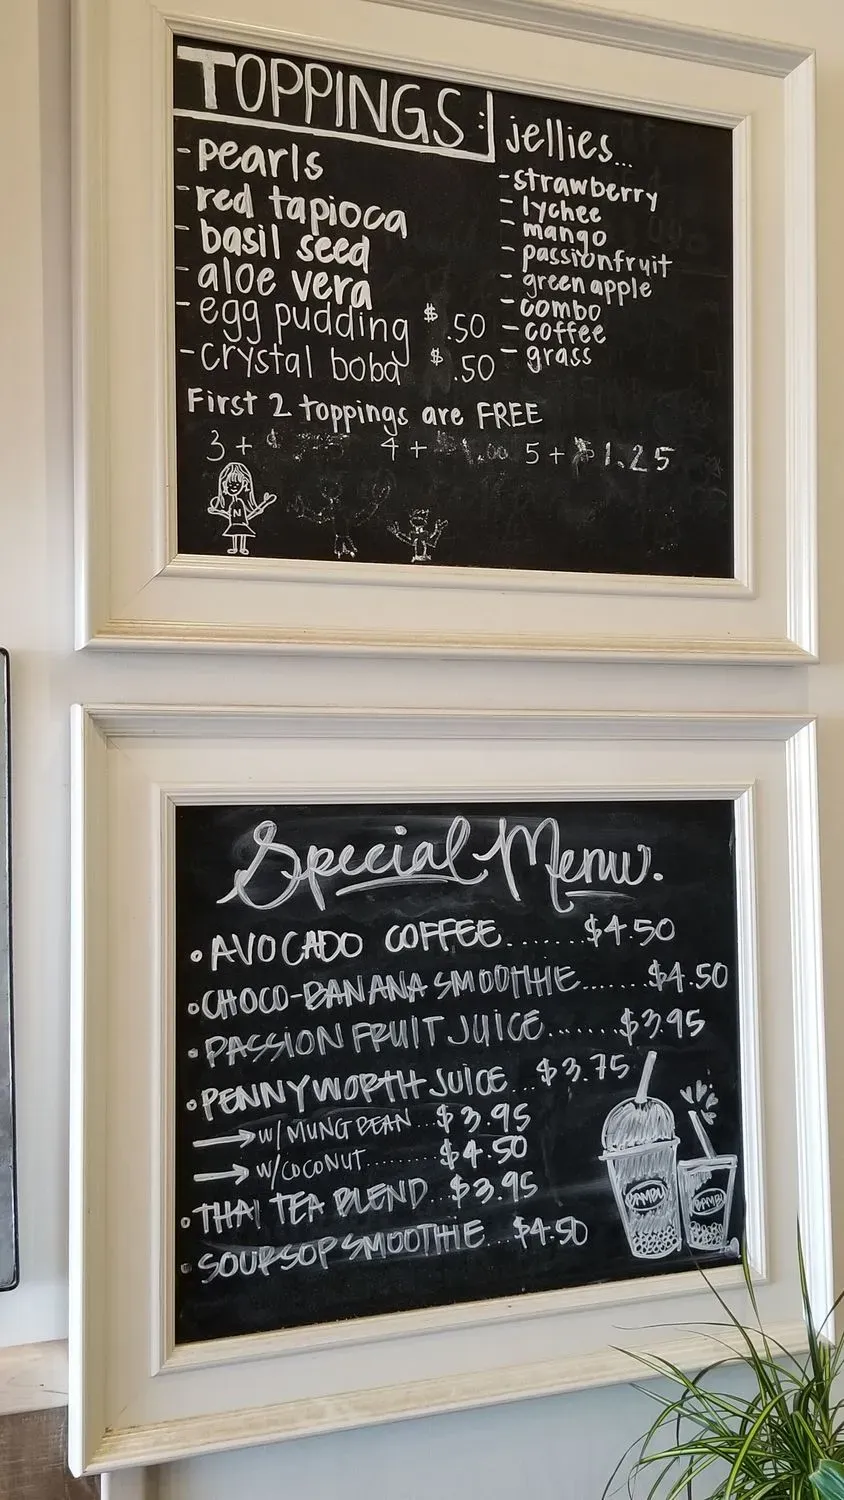 TOPPINGS:
- pearls
- red tapioca
- basil seed
- aloe vera
- egg pudding $.50
- crystal boba $.50
jellies...
- strawberry
- lychee
- mango
- passionfruit
- green apple
- combo
- coffee
- grass
First 2 toppings are FREE
3+ 4+ $1.00 5+ $1.25
N
Special Menu.
• AVOCADO COFFEE.......$4.50
• CHOCO-BANANA SMOOTHIE......$4.50
• PASSION FRUIT JUICE.......$3.95
• PENNYWORTH JUICE...$3.75
→ w/ MUNG BEAN...$3.95
→ w/ COCONUT.........$4.50
• THAI TEA BLEND...$3.95
• SOURSOP SMOOTHIE...$4.50
BAMBU
BAMBU